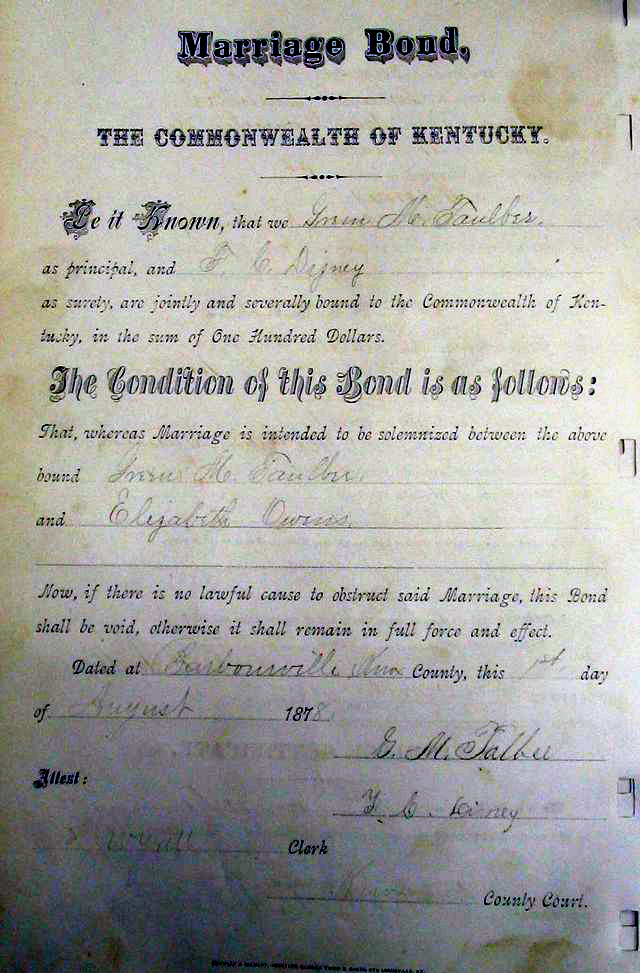 Marriage Bond,
THE COMMONWEALTH OF KENTUCKY.
Be it Known, that we Green M. Faulber.
as principal, and F. C. Digney
as surety, are jointly and severally bound to the Commonwealth of Ken-
tucky, in the sum of One Hundred Dollars.
The Condition of this Bond is as follows:
That, whereas Marriage is intended to be solemnized between the above
bound Green M. Faulber.
and Elizabeth Owens.
Now, if there is no lawful cause to obstruct said Marriage, this Bond
shall be void, otherwise it shall remain in full force and effect.
Dated at Barbourville Knox County, this 1st day
of August 1878.
G. M. Falber
Attest:
F. C. Digney
Clerk
Knox
County Court.